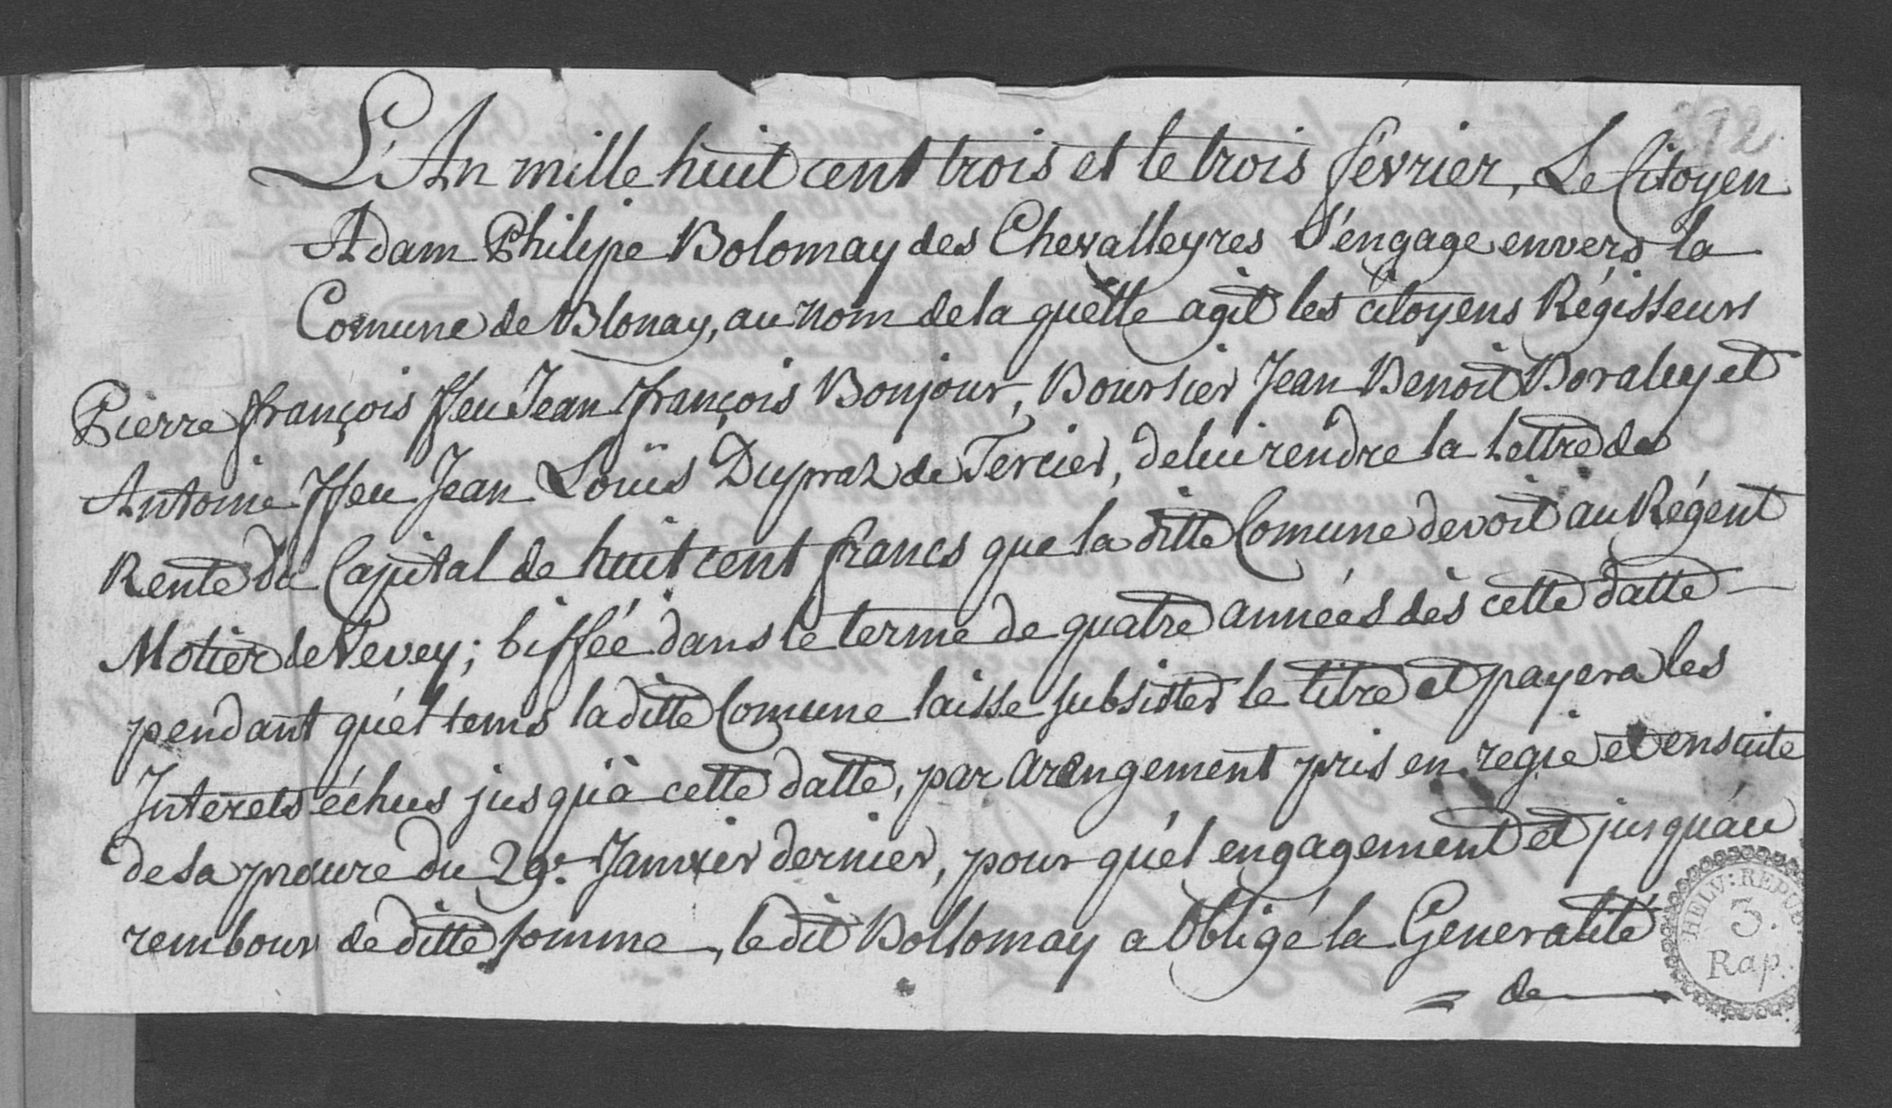 L'An mille huit cent trois et le trois février, Le Citoyen
Adam Philippe Bolomay des Chevalleyres S'engage envers la
Comune de Blonay, au nom de la quelle agit les citoyens Régisseurs
Pierre françois ffeu Jean françois Bonjour, Boursier Jean Benoit Boraley et
Antoine ffeu Jean Loüis Dupraz de Tercier, de lui rendre la Lettre de
Rente du Capital de huit cent francs que la ditte Comune devoit au Régent
Motier de Vevey; biffée dans le terme de quatre années dès cette datte
pendant quel tems la ditte Comune laisse subsister le titre et payera les
Interets échus jusqu'à cette datte, par arengement pris en regie et ensuite
de sa procure du 29e. Janvier dernier, pour quel engagement et jusqu'au
rembour de ditte somme, le dit Bollomay a obligé la Generalité
= de
HELV: REPUB
3.
Rap.